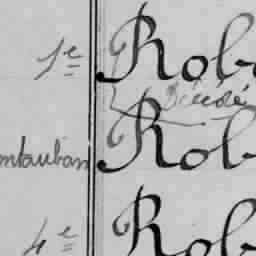 1e Rob
Décédé
ntauban Rob
4e Rob